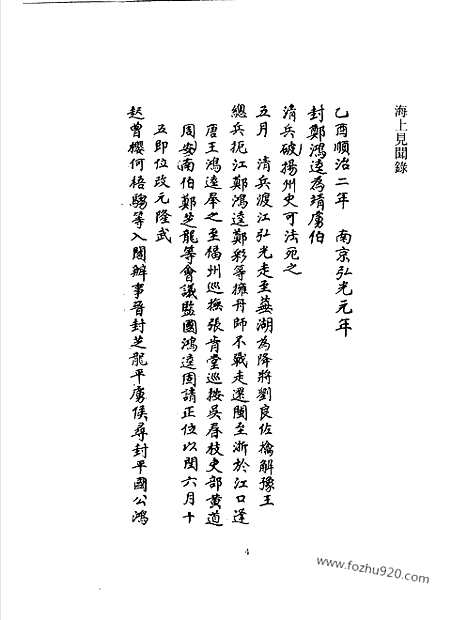 海上見聞錄
乙酉順治二年　南京弘光元年
封鄭鴻逵為靖虜伯
清兵破揚州史可法死之
五月　清兵渡江弘光走至蕪湖為降將劉良佐擒解豫王
總兵扼江鄭鴻逵鄭彩等擁舟師不戰走還閩至浙於江口逢
唐王鴻逵奉之至福州巡撫張肯堂巡按吳春枝吏部黃道
周安南伯鄭芝龍等會議監國鴻逵固請正位以閏六月十
五即位改元隆武
起曾櫻何梧騶等入閣辦事晉封芝龍平虜侯尋封平國公鴻
4
www.fozhu920.com